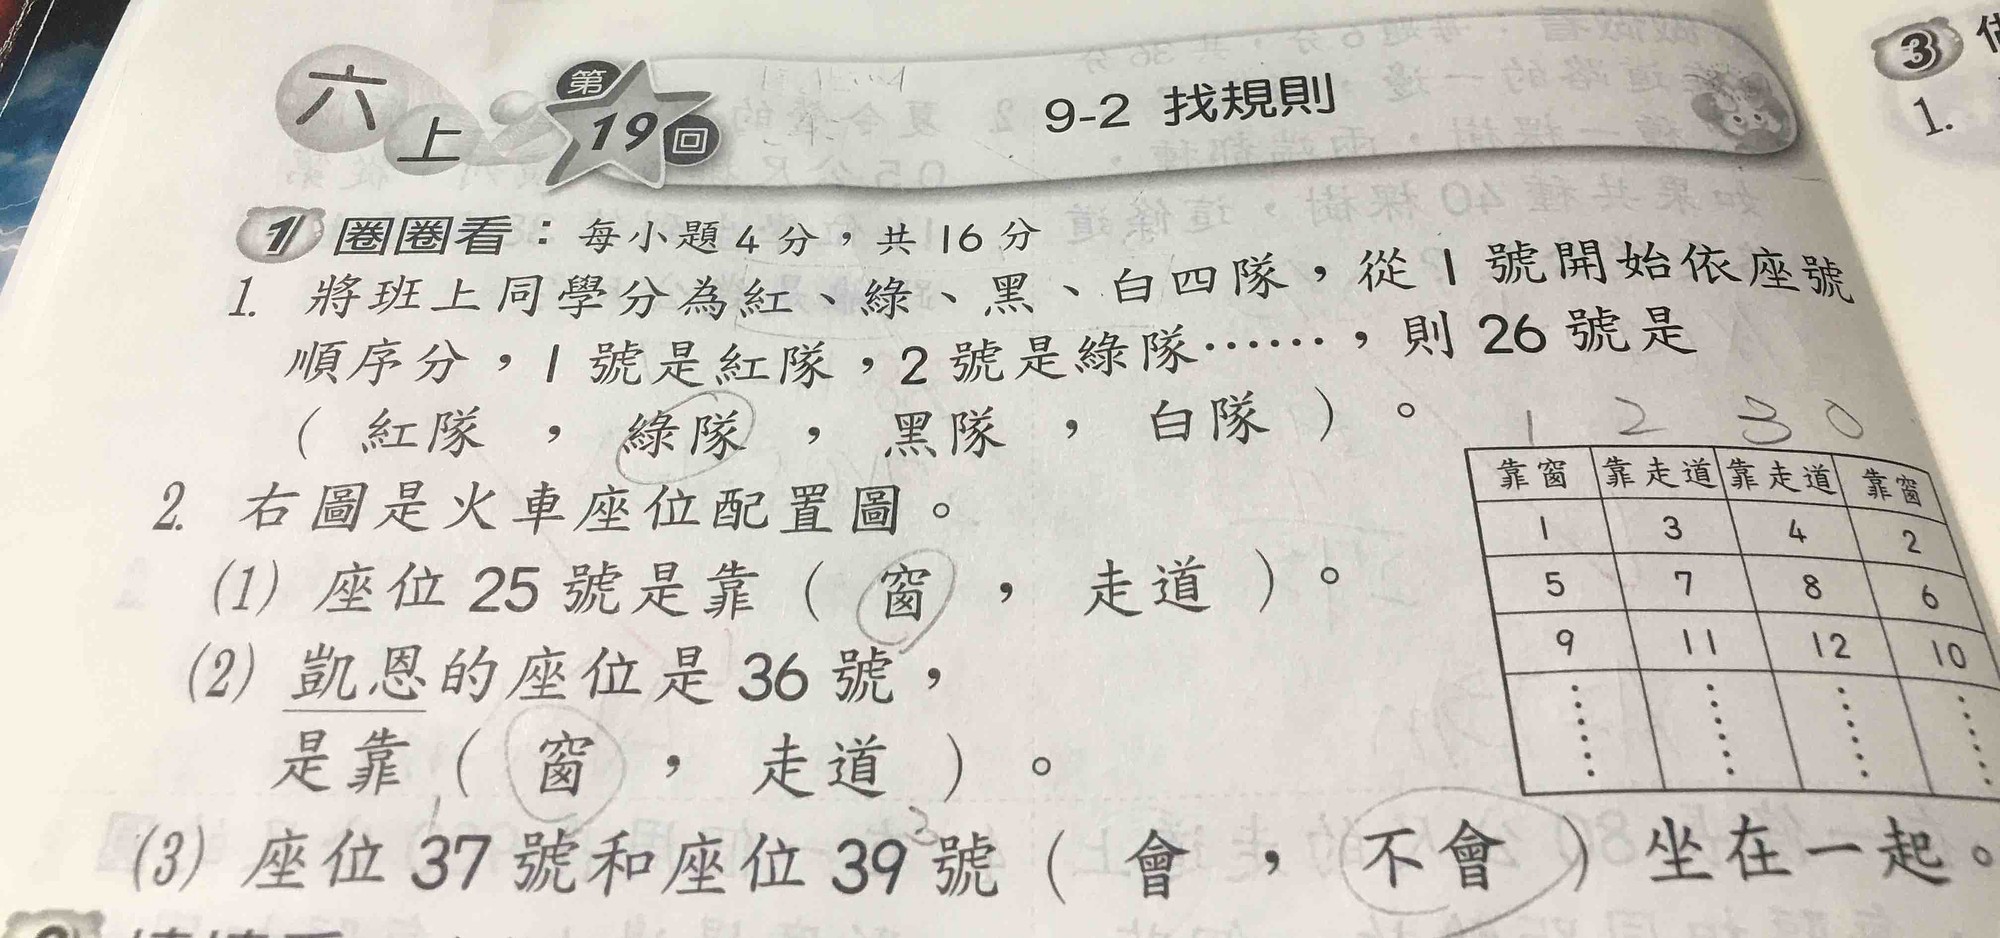 六上 第19回 9-2 找規則
3
1.
1 圈圈看：每小題4分，共16分
1. 將班上同學分為紅、綠、黑、白四隊，從1號開始依座號
順序分，1號是紅隊，2號是綠隊……，則26號是
（紅隊，綠隊，黑隊，白隊）。
2. 右圖是火車座位配置圖。
(1) 座位25號是靠（窗，走道）。
(2) 凱恩的座位是36號，
是靠（窗，走道）。
(3) 座位37號和座位39號（會，不會）坐在一起。
1 2 3 0
靠窗 靠走道 靠走道 靠窗
1 3 4 2
5 7 8 6
9 11 12 10
⋮ ⋮ ⋮ ⋮